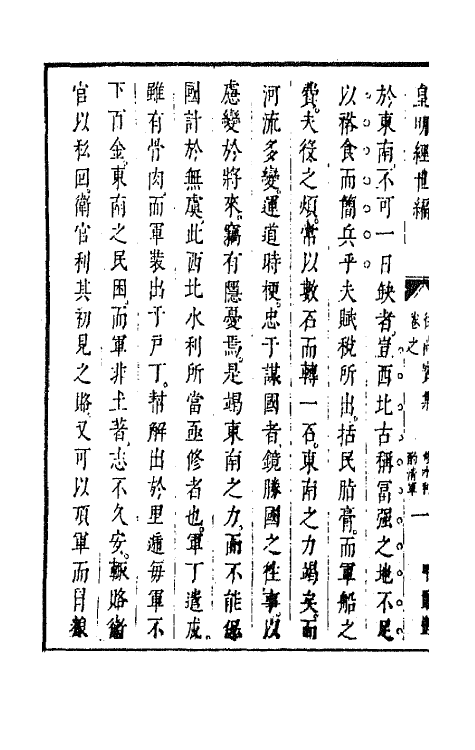 皇明經世編
卷之
一
於東南不可一日缺者豈西北古稱富强之地不足
以務食而簡兵乎夫賦稅所出括民脂膏而軍船之
費夫役之煩常以數石而轉一石東南之力竭矣而
河流多變運道時梗忠于謀國者鏡勝國之往事以
慮變於將來竊有隱憂焉是竭東南之力而不能保
國計於無虞此西北水利所當亟修者也軍丁遣戍
雖有骨肉而軍裝出于戶丁幫解出於里遞每軍不
下百金東南之民困而軍非土著志不久安輒賂衛
官以私回衛官利其初見之賂又可以頂軍而冒糧